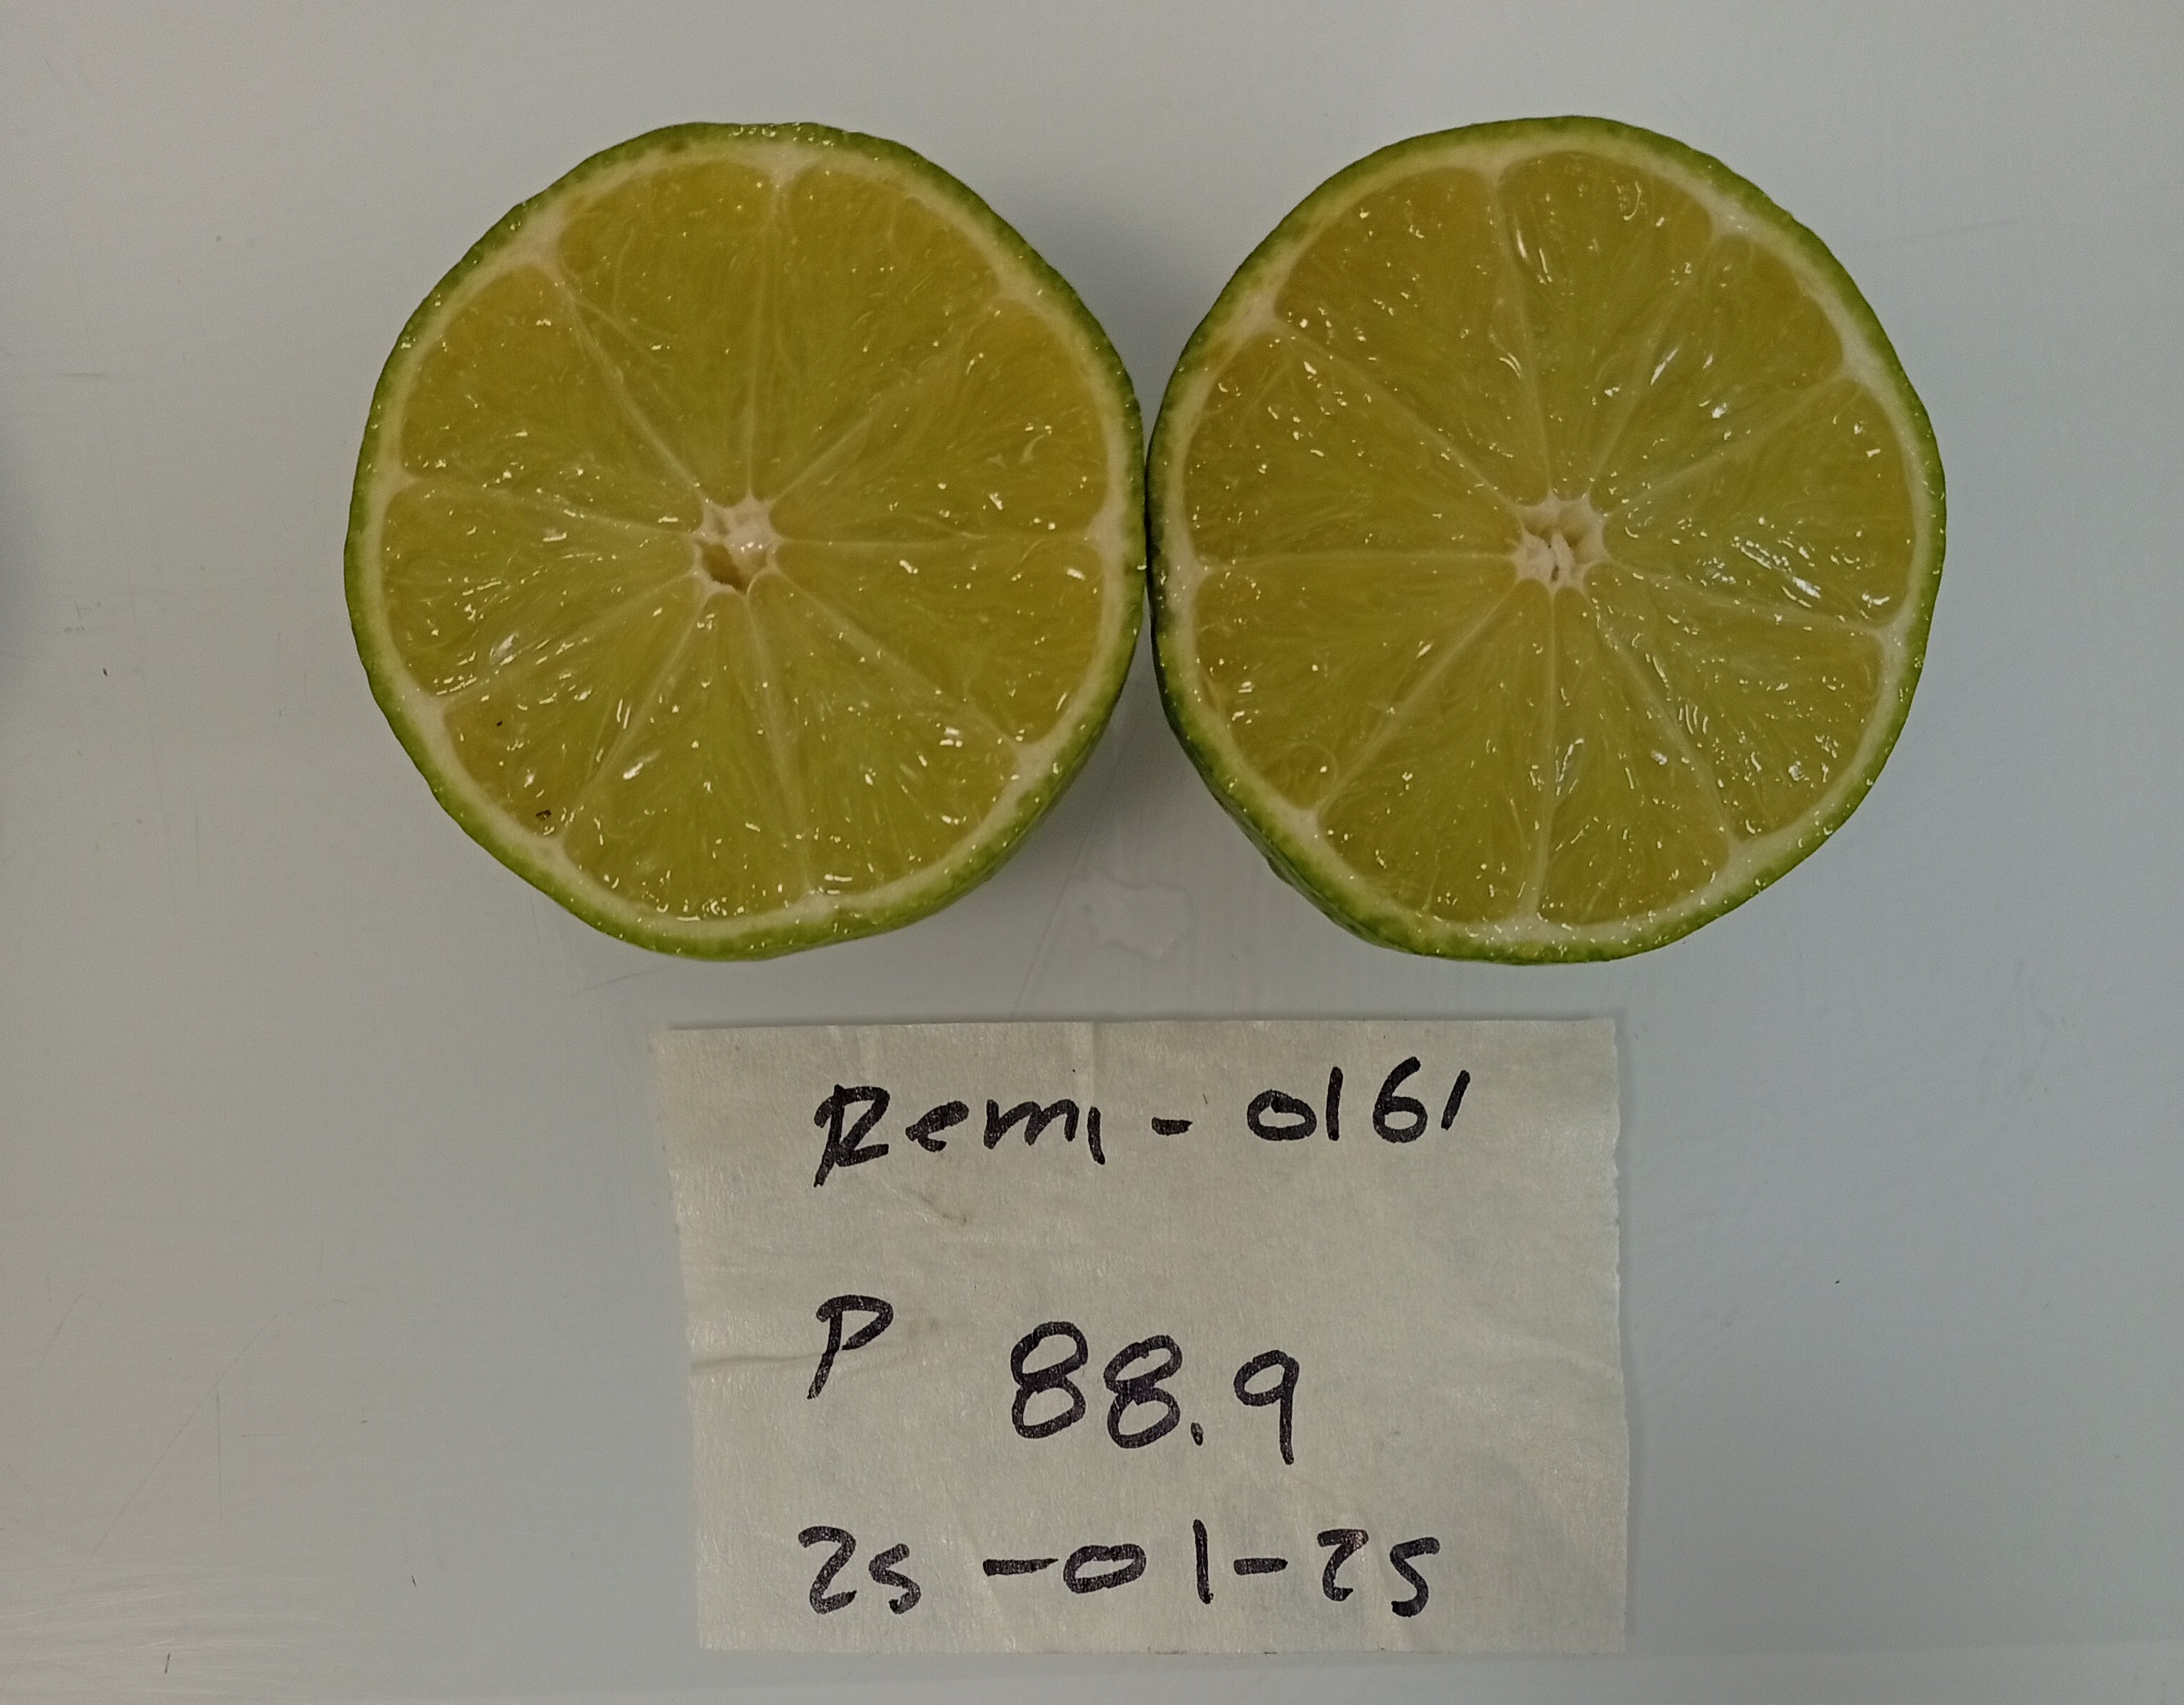 Remi - 0161
P 88.9
25-01-25